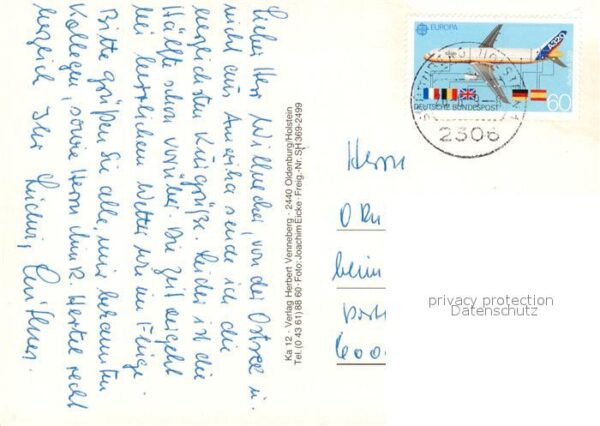 Lieber Herr Willmecher, von der Ostsee u.
nicht aus Amerika sende ich die
herzlichsten Kurgrüße. Leider ist die
Hälfte schon vorüber. Die Zeit vergeht
bei herrlichem Wetter wie im Fluge.
Bitte grüßen Sie alle, mir bekannten
Kollegen, sowie Herrn Hertel recht
herzlich Ihr
Ka 12 - Verlag Herbert Venneberg · 2440 Oldenburg/Holstein
Tel. (0 43 61) 88 60 · Foto: Joachim Eicke · Freig.-Nr. SH 369-2499
EUROPA
A320
DEUTSCHE BUNDESPOST
60
2306
Herrn
beim
6000
privacy protection
Datenschutz